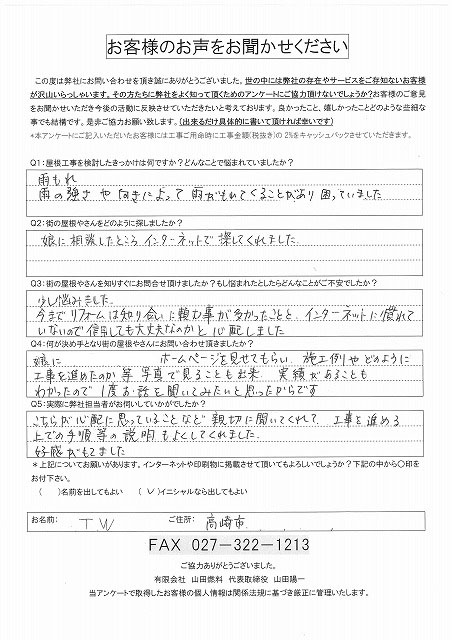 お客様のお声をお聞かせください
この度は弊社にお問い合わせを頂き誠にありがとうございました。世の中には弊社の存在やサービスをご存知ないお客様
が沢山いらっしゃいます。その方たちに弊社をよく知って頂くためのアンケートにご協力頂けないでしょうか?お客様のご意見
をお聞かせいただき今後の活動に反映させていただきたいと考えております。良かったこと、嬉しかったことどのような些細な
事でも結構です。是非ご協力お願い致します。(出来るだけ具体的に書いて頂ければ幸いです)
*本アンケートにご記入いただいたお客様には工事ご用命時に工事金額(税抜き)の2%をキャッシュバックさせていただきます。
Q1:屋根工事を検討したきっかけは何ですか?どんなことで悩まれていましたか?
雨もれ
雨の強さや向きによって雨がもれてくることがあり困っていました
Q2:街の屋根やさんをどのように探しましたか?
娘に相談したところインターネットで探してくれました。
Q3:街の屋根やさんを知りすぐにお問合せ頂けましたか?もし悩まれたとしたらどんなことがご不安でしたか?
少し悩みました。
今までリフォームは知り合いに頼む事が多かったことと、インターネットに慣れて
いないので信用しても大丈夫なのかと心配しました
Q4:何が決め手となり街の屋根やさんにお問い合わせ頂きましたか?
娘に ホームページを見せてもらい、施工例やどのように
工事を進めたのか等写真で見ることも出来、実績があることも
わかったので1度お話を聞いてみたいと思ったからです
Q5:実際に弊社担当者がお伺いしていかがでしたか?
こちらが心配に思っていることなど親切に聞いてくれて、工事を進める
上での手順等の説明もよくしてくれました。
好感がもてました
*上記についてお願いがあります。インターネットや印刷物に掲載させて頂いてもよろしいでしょうか?下記の中から〇印を
お付け下さい。
( )名前を出してもよい (✓)イニシャルなら出してもよい
お名前: TW ご住所: 高崎市
FAX 027-322-1213
ご協力ありがとうございました。
有限会社 山田燃料 代表取締役 山田陽一
当アンケートで取得したお客様の個人情報は関係法規に基づき厳正に管理いたします。